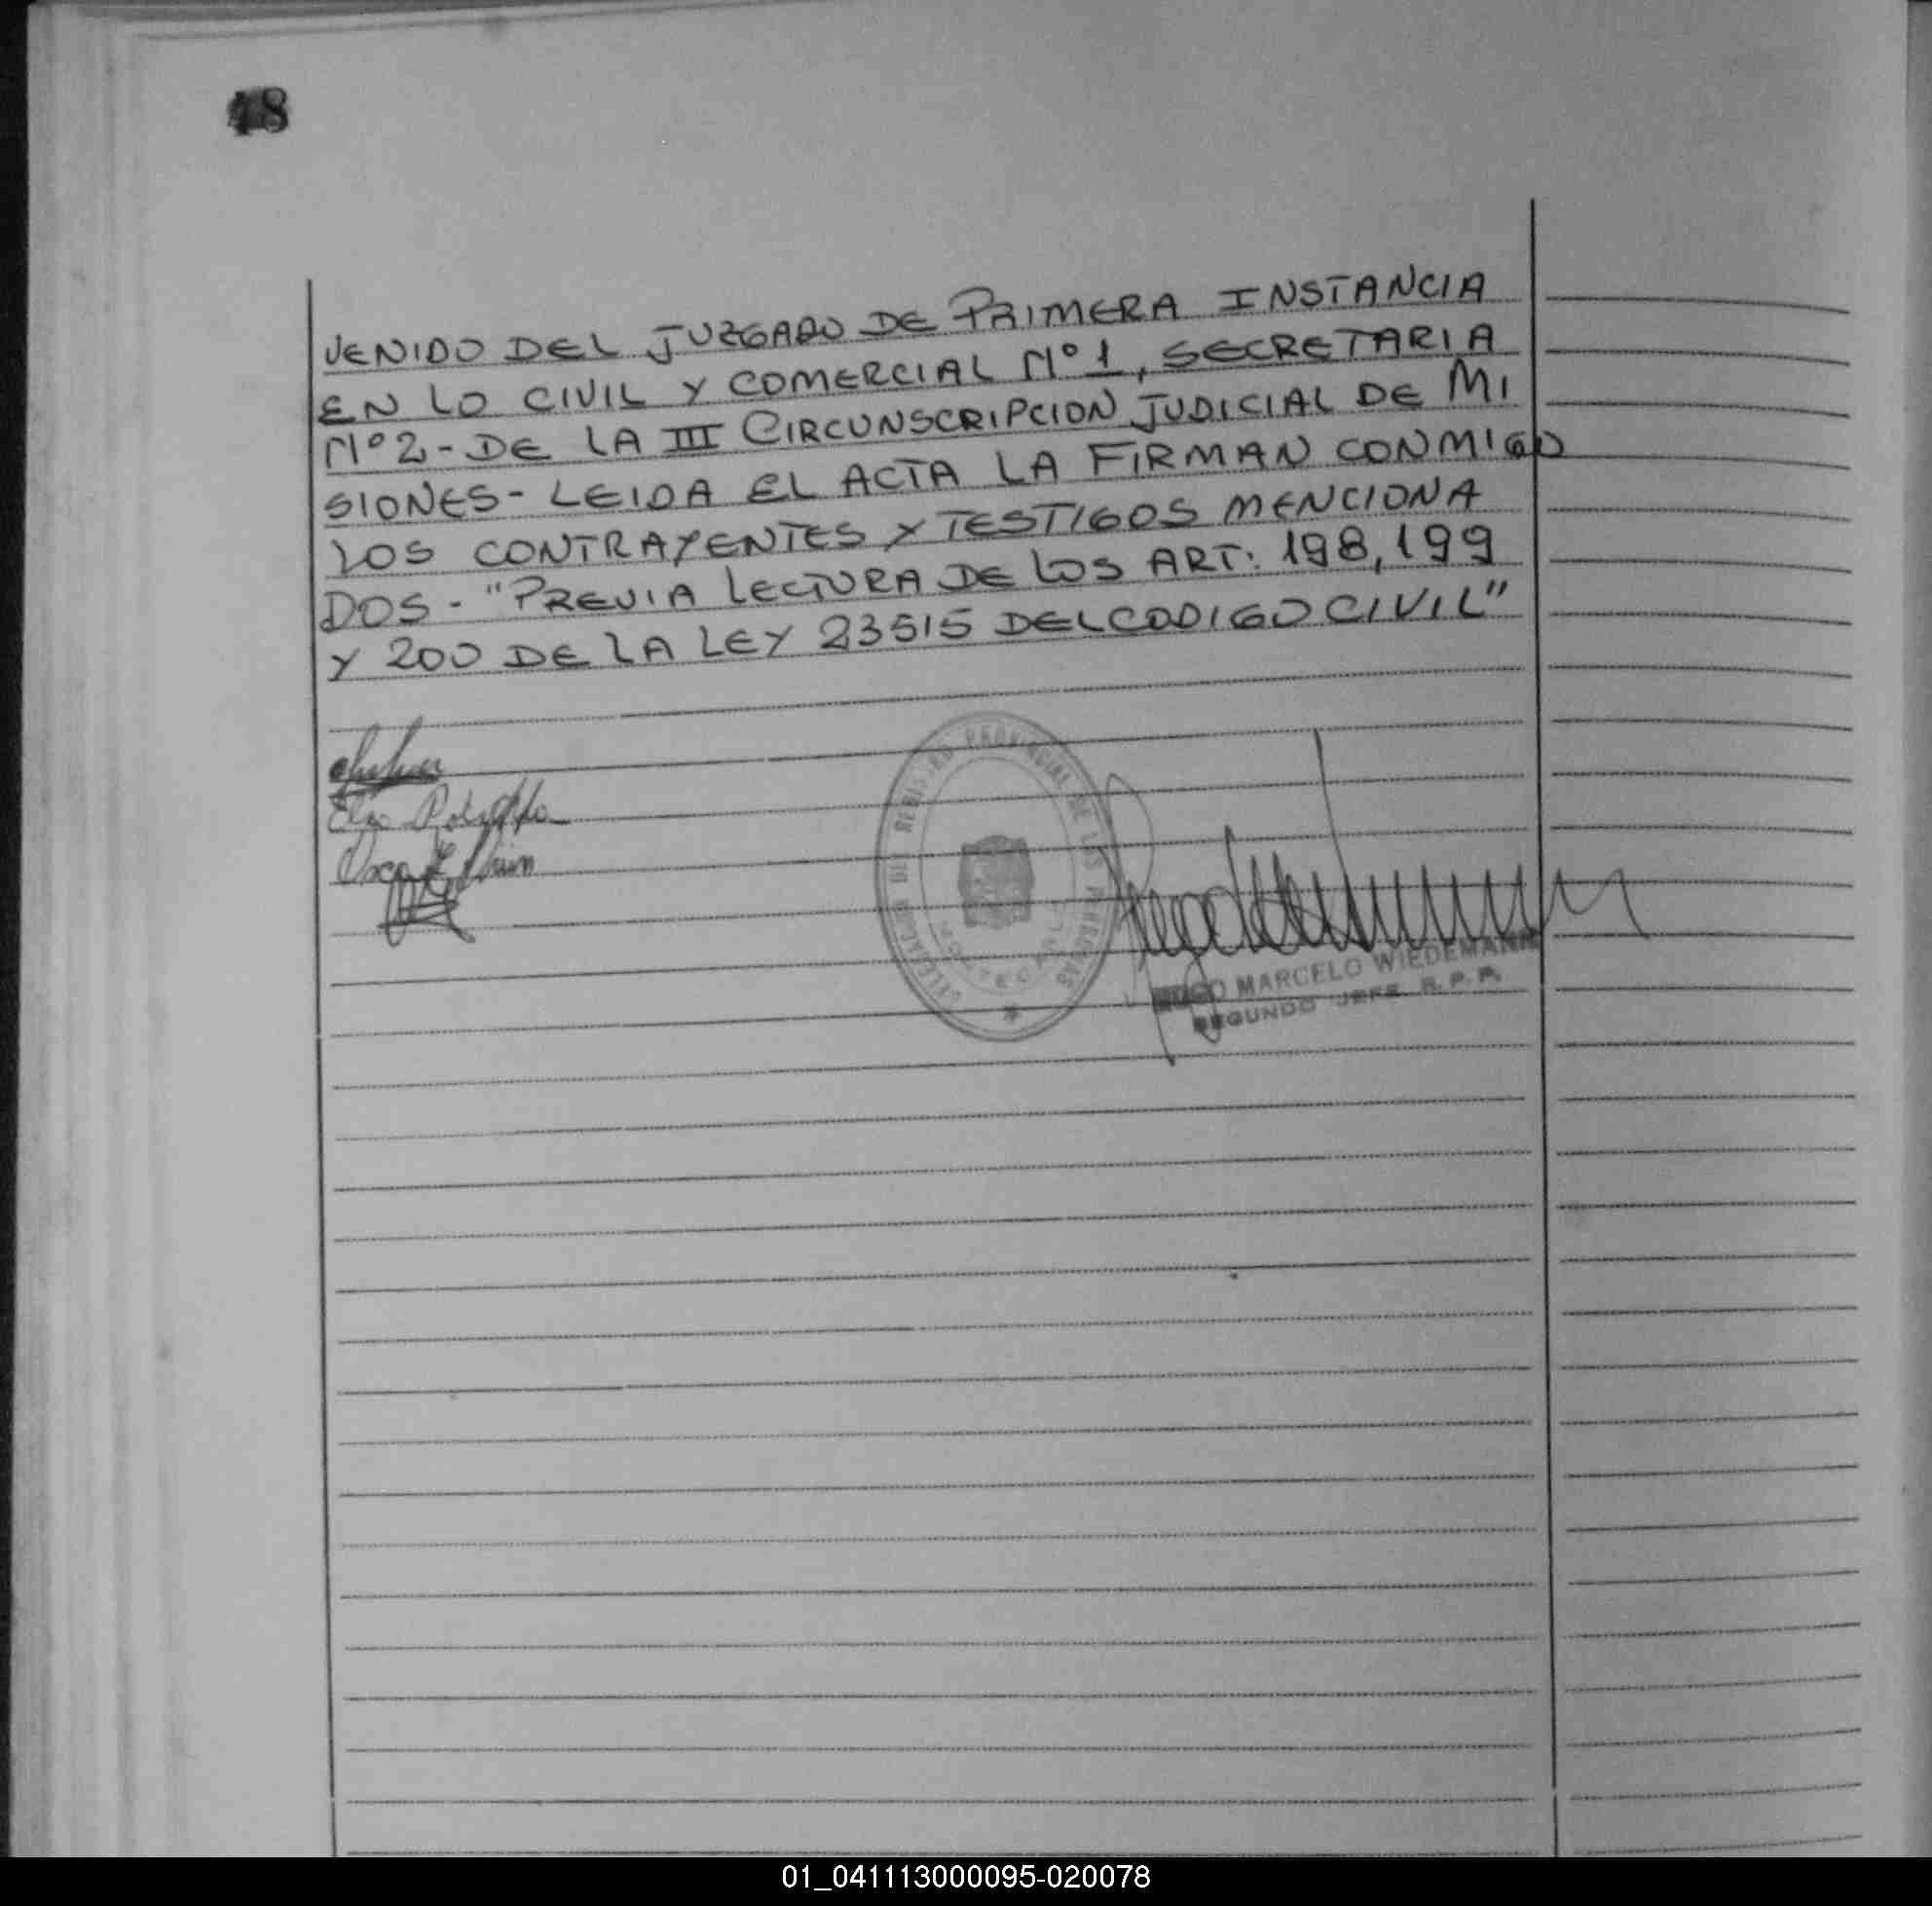 48
VENIDO DEL JUZGADO DE PRIMERA INSTANCIA
EN LO CIVIL Y COMERCIAL Nº 1, SECRETARIA
Nº 2 - DE LA III CIRCUNSCRIPCION JUDICIAL DE MI
SIONES - LEIDA EL ACTA LA FIRMAN CONMIGO
LOS CONTRAYENTES Y TESTIGOS MENCIONA
DOS - "PREVIA LECTURA DE LOS ART: 198, 199
Y 200 DE LA LEY 23515 DEL CODIGO CIVIL"
DELEGACION DEL REGISTRO PROVINCIAL DE LAS PERSONAS
HUGO MARCELO WIEDEMANN
SEGUNDO JEFE R. P. P.
01_041113000095-020078